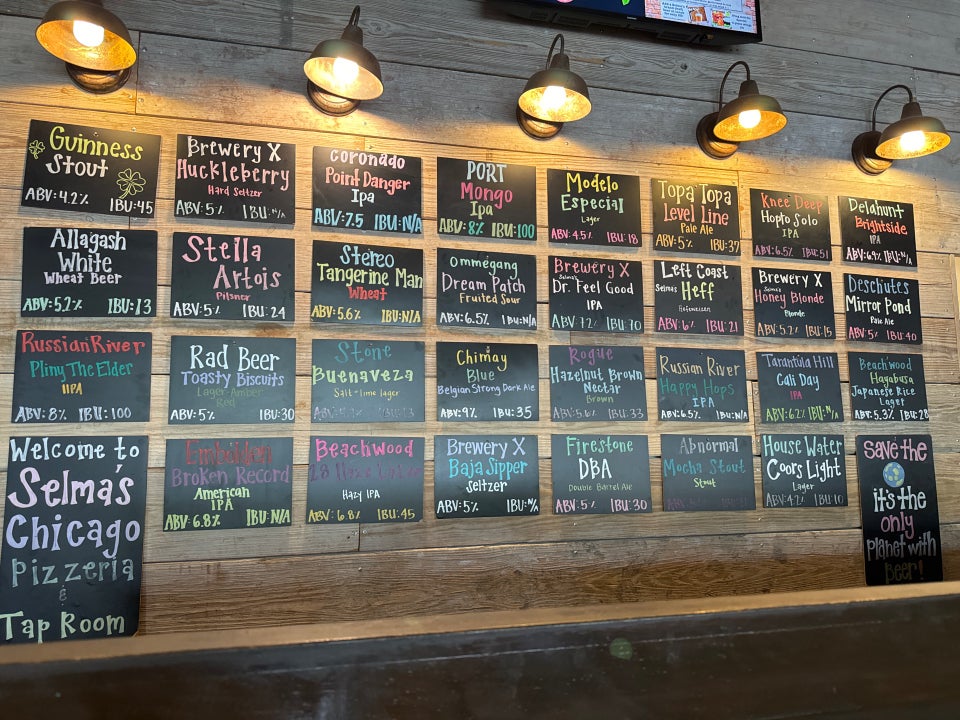 Guinness
Stout
ABV: 4.2% IBU: 45
Brewery X
Huckleberry
Hard Seltzer
ABV: 5% IBU: N/A
Coronado
Point Danger
Ipa
ABV: 7.5 IBU: N/A
PORT
Mongo
Ipa
ABV: 8% IBU: 100
Modelo
Especial
Lager
ABV: 4.5% IBU: 18
Topa Topa
Level Line
Pale Ale
ABV: 5% IBU: 37
Knee Deep
Hopto Solo
IPA
ABV: 6.5% IBU: 51
Delahunt
Brightside
IPA
ABV: 6.9% IBU: N/A
Allagash
White
Wheat Beer
ABV: 5.2% IBU: 13
Stella
Artois
Pilsner
ABV: 5% IBU: 24
Stereo
Tangerine Man
Wheat
ABV: 5.6% IBU: N/A
Ommegang
Dream Patch
Fruited Sour
ABV: 6.5% IBU: N/A
Brewery X
Selma's
Dr. Feel Good
IPA
ABV: 7.2% IBU: 70
Left Coast
Selmas Heff
Hefeweizen
ABV: 6% IBU: 21
Brewery X
Selma's
Honey Blonde
Blonde
ABV: 5.2% IBU: 15
Deschutes
Mirror Pond
Pale Ale
ABV: 5% IBU: 40
Russian River
Pliny The Elder
IIPA
ABV: 8% IBU: 100
Rad Beer
Toasty Biscuits
Lager-Amber
Red
ABV: 5% IBU: 30
Stone
Buenaveza
Salt-lime lager
Chimay
Blue
Belgian Strong Dark Ale
ABV: 9% IBU: 35
Rogue
Hazelnut Brown
Nectar
Brown
ABV: 5.6% IBU: 33
Russian River
Happy Hops
IPA
ABV: 6.5% IBU: N/A
Tarantula Hill
Cali Day
IPA
ABV: 6.2% IBU: N/A
Beachwood
Hayabusa
Japanese Rice
Lager
ABV: 5.3% IBU: 28
Welcome to
Selma's
Chicago
Pizzeria
&
Tap Room
Embolden
Broken Record
American
IPA
ABV: 6.8% IBU: N/A
Beachwood
Hazy IPA
ABV: 6.8% IBU: 45
Brewery X
Baja Sipper
Seltzer
ABV: 5% IBU: N/A
Firestone
DBA
Double Barrel Ale
ABV: 5% IBU: 30
Abnormal
Mocha Stout
Stout
House Water
Coors Light
Lager
ABV: 4.2% IBU: 10
Save the
it's the
only
planet with
Beer!